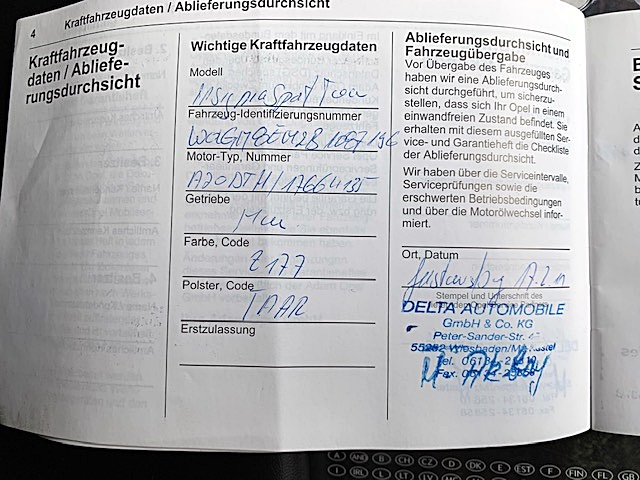 4
Kraftfahrzeugdaten / Ablieferungsdurchsicht
Kraftfahrzeug-
daten / Abliefe-
rungsdurchsicht
Wichtige Kraftfahrzeugdaten
Modell
Insignia Sport Tour
Fahrzeug-Identifizierungsnummer
Motor-Typ, Nummer
A20DTH / 17664135
Getriebe
Farbe, Code
Z 177
Polster, Code
TAAR
Erstzulassung
Ablieferungsdurchsicht und
Fahrzeugübergabe
Vor Übergabe des Fahrzeuges
haben wir eine Ablieferungsdurch-
sicht durchgeführt, um sicherzu-
stellen, dass sich Ihr Opel in einem
einwandfreien Zustand befindet. Sie
erhalten mit diesem ausgefüllten Ser-
vice- und Garantieheft die Checkliste
der Ablieferungsdurchsicht.
Wir haben über die Serviceintervalle,
Serviceprüfungen sowie die
erschwerten Betriebsbedingungen
und über die Motorölwechsel infor-
miert.
Ort, Datum
Stempel und Unterschrift des
DELTA AUTOMOBILE
GmbH & Co. KG
Peter-Sander-Str.
55252 Wiesbaden/Mz-Kastel
Tel. 06134-
Fax. 06134-
A AND B CH CZ D DK E EST F FIN FL GB
I IRL L LT LV MC